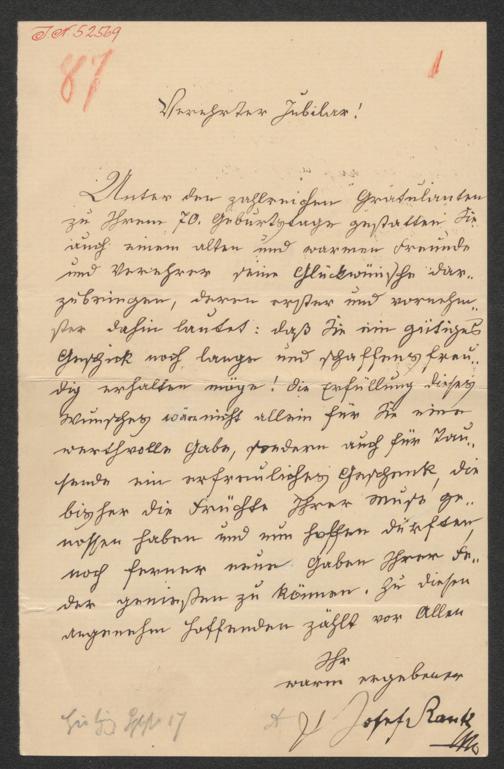 J.N. 52569
87
1
Verehrter Jubilar!
Unter den zahlreichen Gratulanten
zu Ihrem 70. Geburtstage gestatten Sie
auch einem alten und warmen Freunde
und Verehrer seine Glückwünsche dar-
zubringen, deren erster und vornehm-
ster dahin lautet: daß Sie ein gütiges
Geschick noch lange und schaffensfreu-
dig erhalten möge! Die Erfüllung dieses
Wunsches wäre nicht allein für Sie eine
werthvolle Gabe, sondern auch für Tau-
sende ein erfreuliches Geschenk, die
bisher die Früchte Ihrer Muse ge-
nossen haben und nun hoffen dürften,
noch ferner neue Gaben Ihrer Fe-
der genießen zu können. Zu diesen
angenehm Hoffenden zählt vor Allen
Ihr
warm ergebener
Josef Rank
17